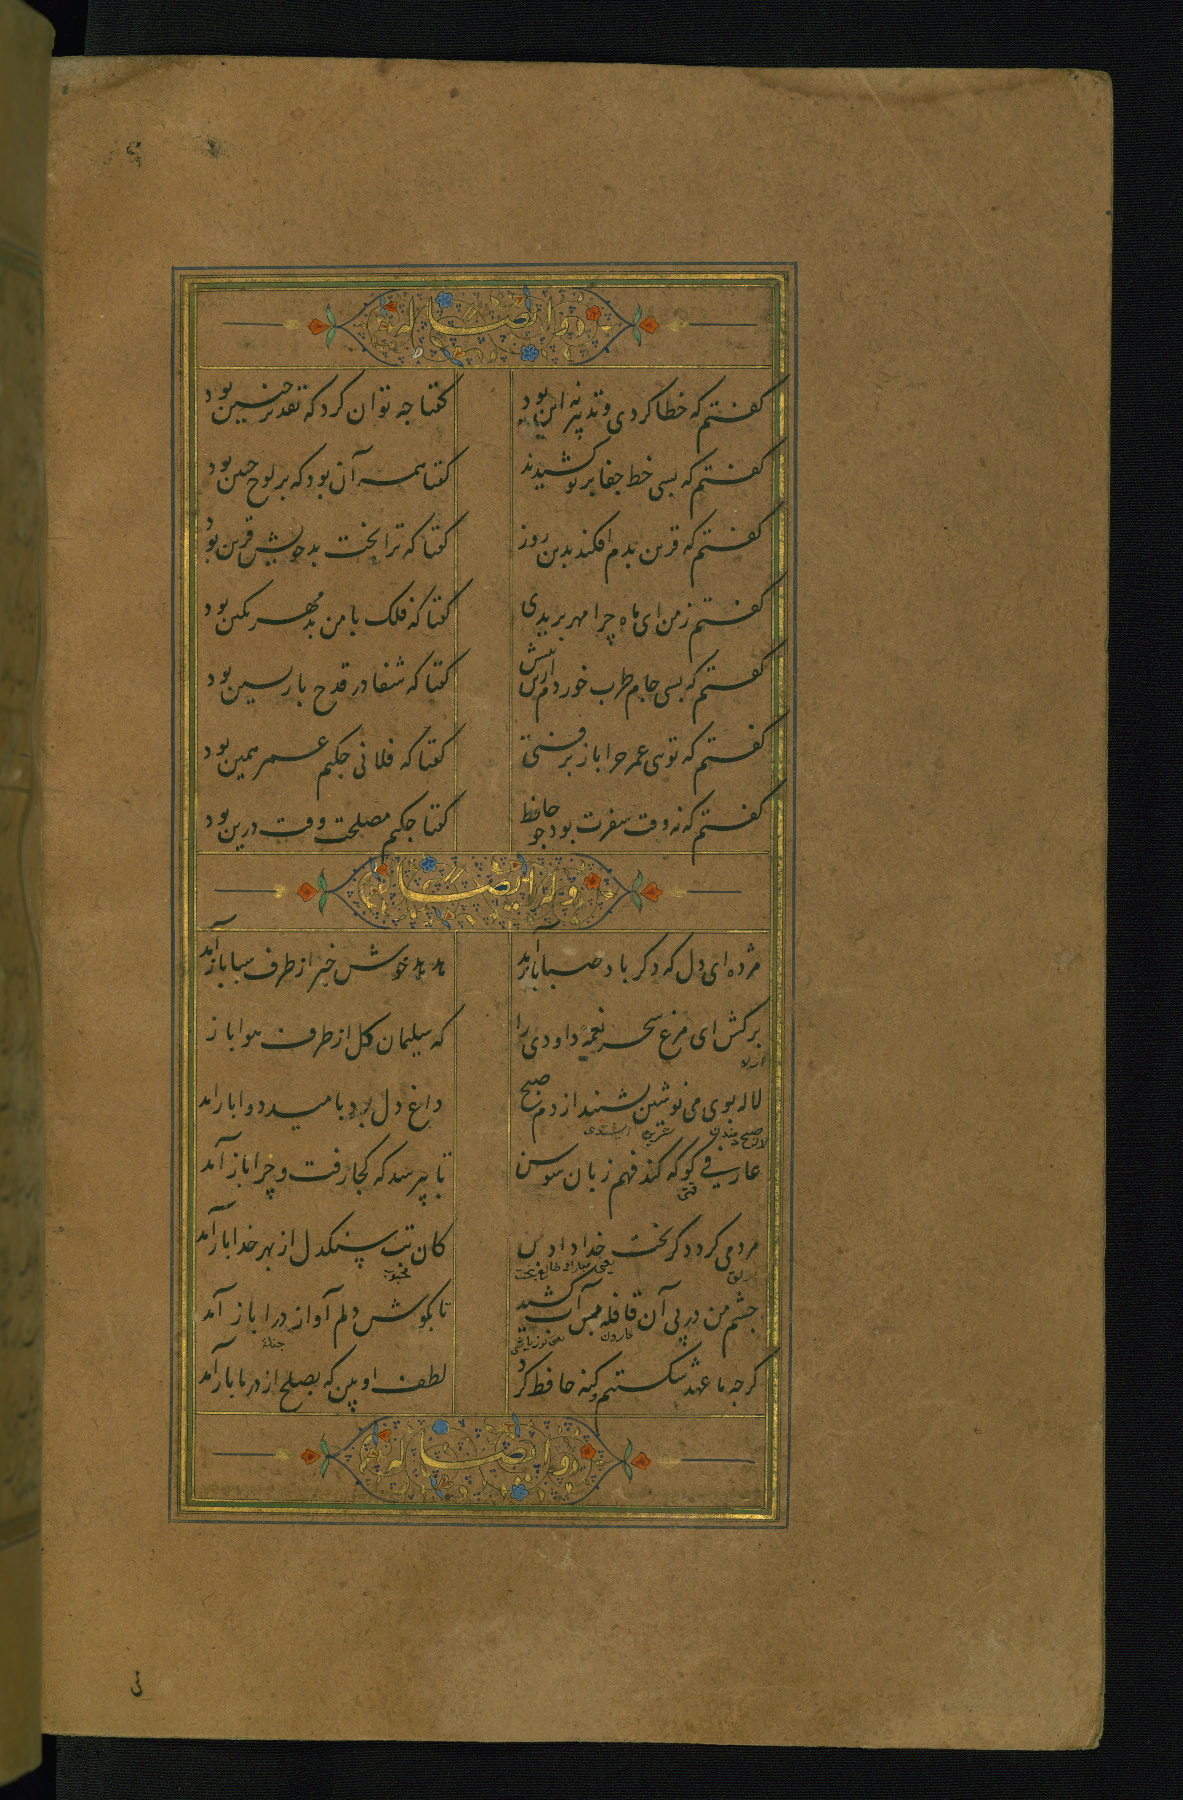 وله ایضا
کفتم که خطا کردی و تدبیر نه این بود
کفتا چه توان کرد که تقدیر چنین بود
کفتم که بسی خط جفا بر تو کشیدند
کفتا همه آن بود که بر لوح جبین بود
کفتم که قرین بدم افکند بدین روز
کفتا که ترا بخت بد خویش قرین بود
کفتم ز من ای ماه چرا مهر بریدی
کفتا که فلک با من بد مهر بکین بود
کفتم که بسی جام طرب خوردم ازین پیش
کفتا که شفا در قدح بازپسین بود
کفتم که تو ای عمر چرا باز برفتی
کفتا که فلانی چکنم عمر همین بود
کفتم که نه وقت سفرت بود چو حافظ
کفتا چکنم مصلحت وقت درین بود
وله ایضا
مژده ای دل که دکر باد صبا باز آمد
هدهد خوش خبر از طرف سبا باز آمد
برکش ای مرغ سحر نغمه داودی را
که سلیمان کل از طرف هوا باز
لاله بوی می نوشین بشنید از دم صبح
داغ دل بود بامید دوا باز آمد
عارفی کو که کند فهم زبان سوسن
تا بپرسد که کجا رفت و چرا باز آمد
مردمی کرد دکر بخت خدا داد من
کان بت سنکدل از بهر خدا باز آمد
چشم من در پی آن قافله بس آب کشید
تا بکوش دلم آواز درا باز آمد
کرچه ما عهد شکستیم و کنه حافظ کرد
لطف او بین که بصلح از در ما باز آمد
وله ایضا